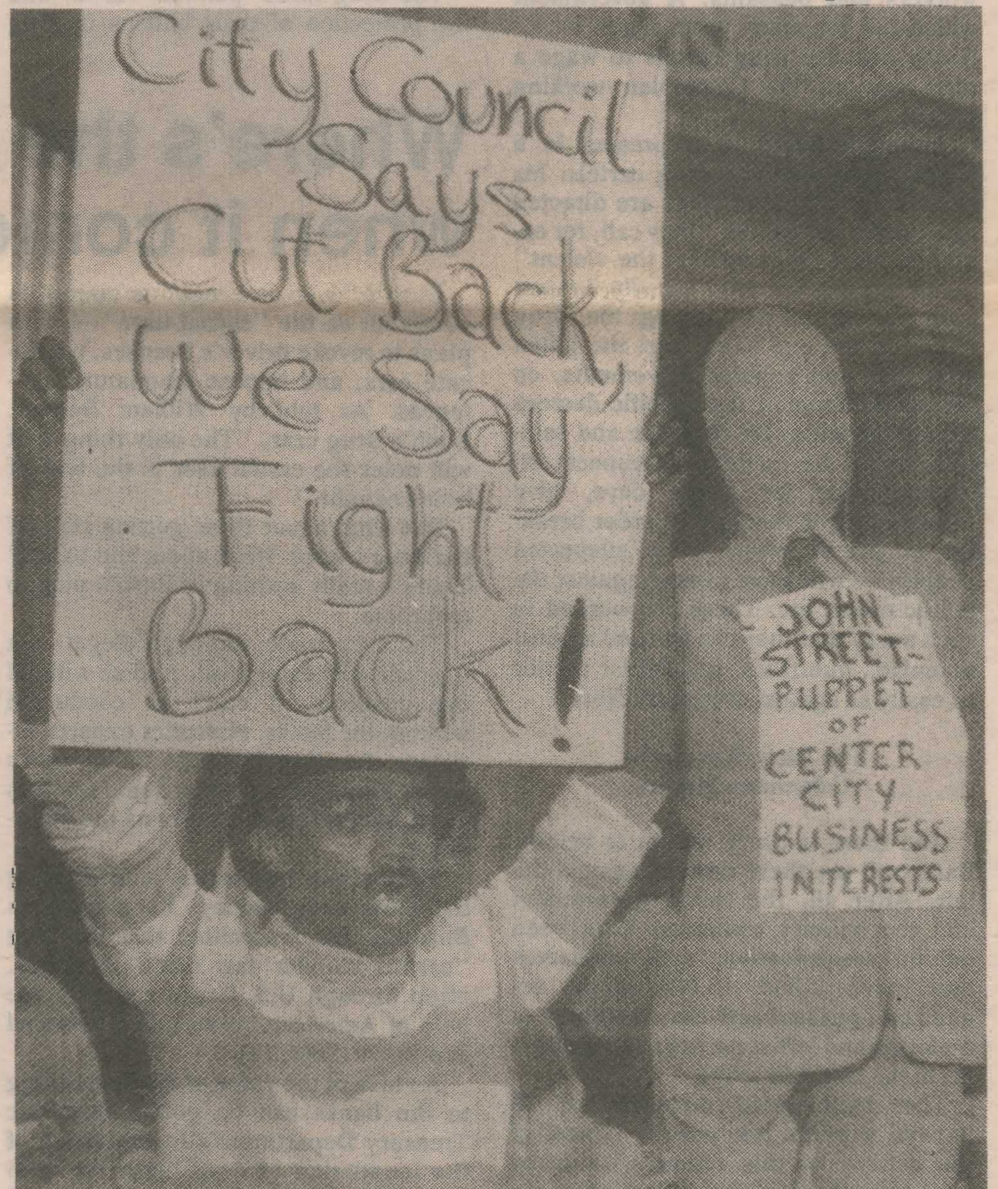 City Council
Says
Cut Back,
We Say,
Fight
Back!
JOHN
STREET-
PUPPET
OF
CENTER
CITY
BUSINESS
INTERESTS